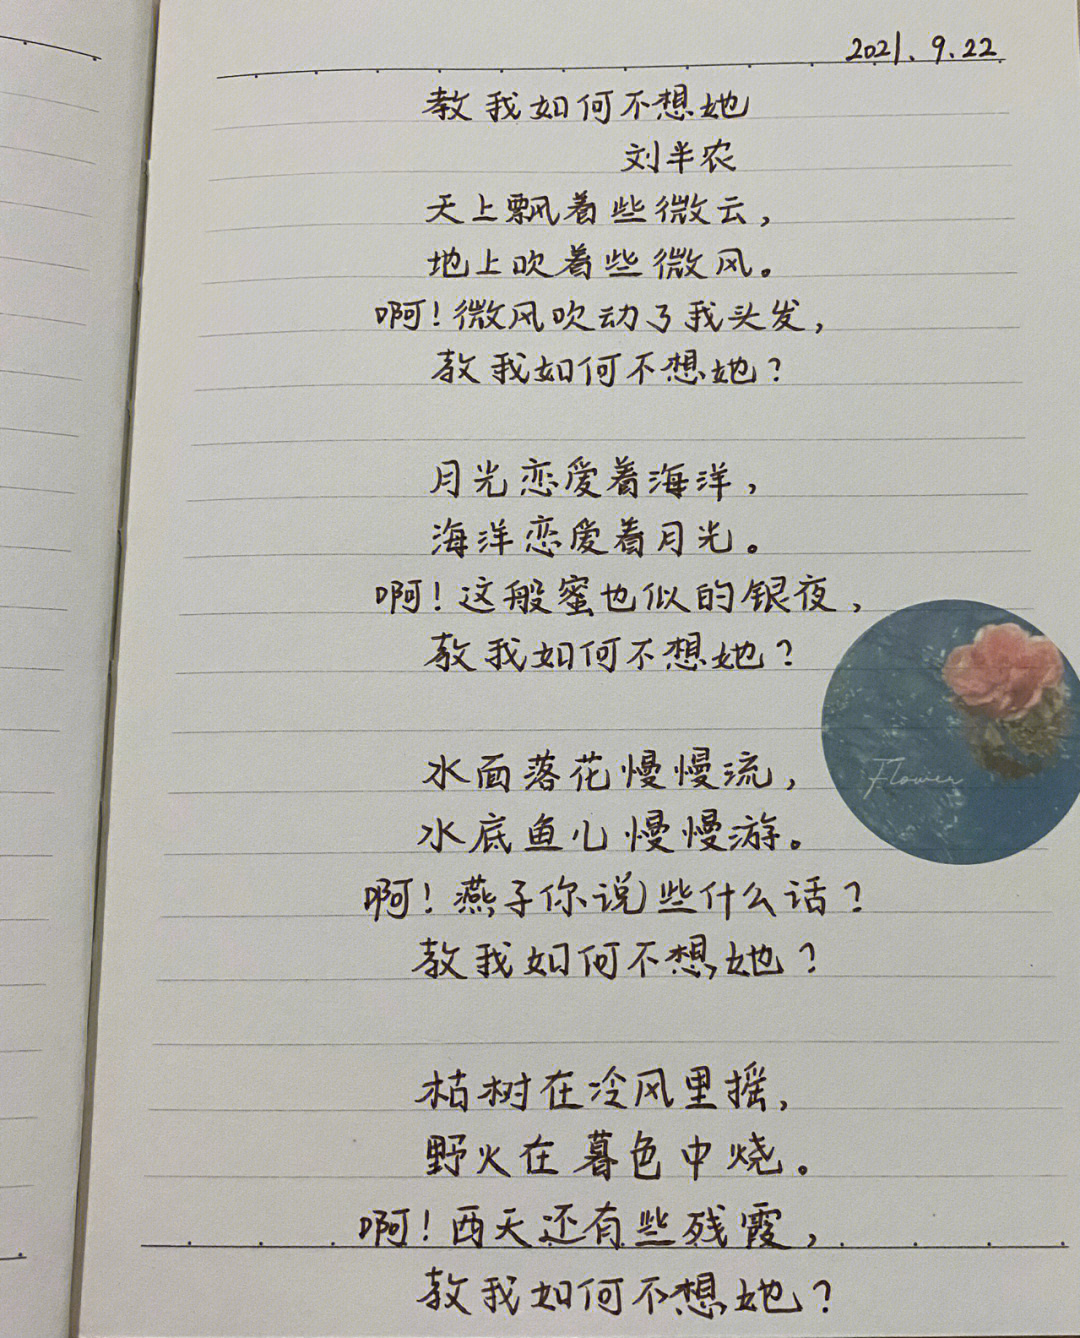 2021.9.22
教我如何不想她
刘半农
天上飘着些微云，
地上吹着些微风。
啊！微风吹动了我头发，
教我如何不想她？
月光恋爱着海洋，
海洋恋爱着月光。
啊！这般蜜也似的银夜，
教我如何不想她？
水面落花慢慢流，
水底鱼儿慢慢游。
啊！燕子你说些什么话？
教我如何不想她？
Flower
枯树在冷风里摇，
野火在暮色中烧。
啊！西天还有些残霞，
教我如何不想她？